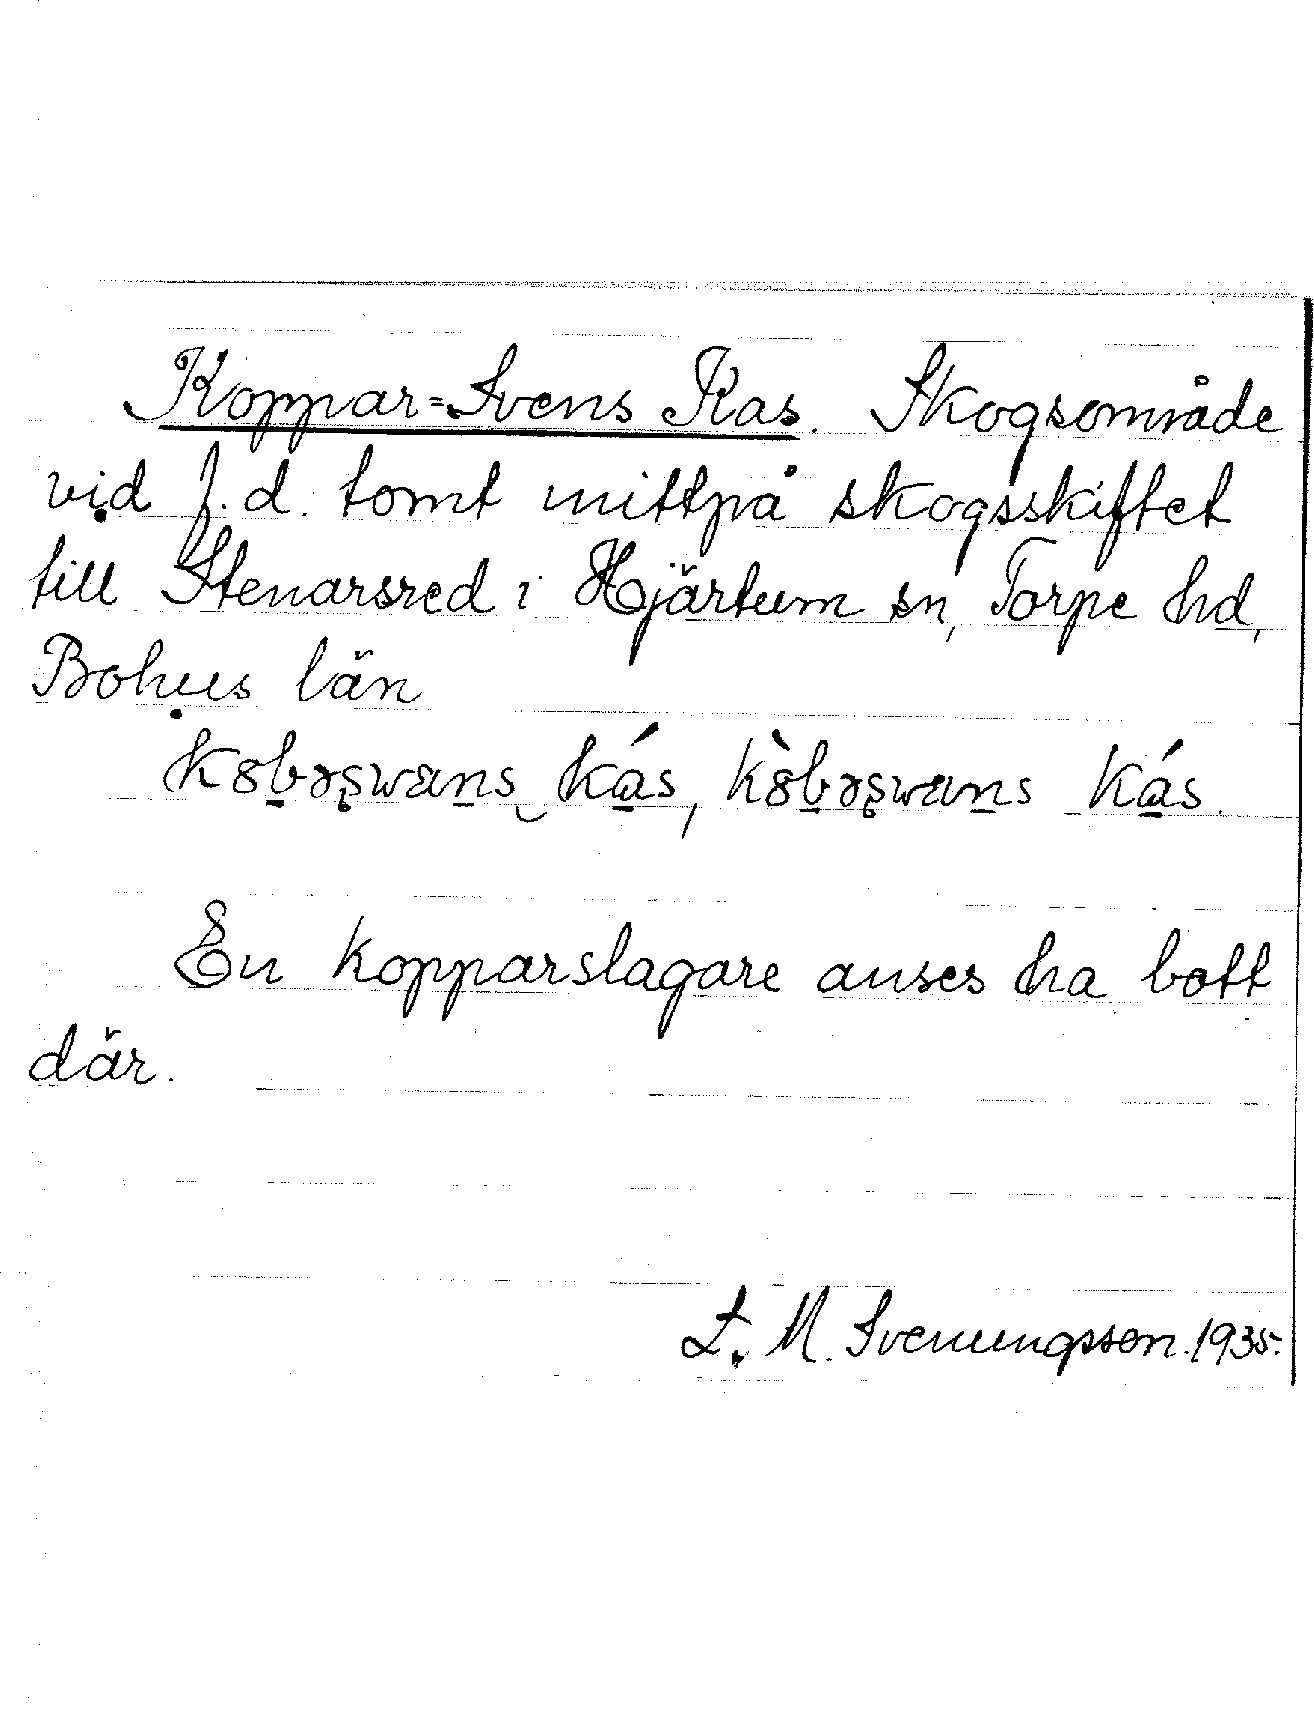 Koppar=Svens Kas. Skogsområde
vid f.d. tomt mittpå skogsskiftet
till Stenarsred i Hjärtum sn, Torpe hd,
Bohus län
En kopparslagare anses ha bott
där.
L. M. Svenungsson. 1935.